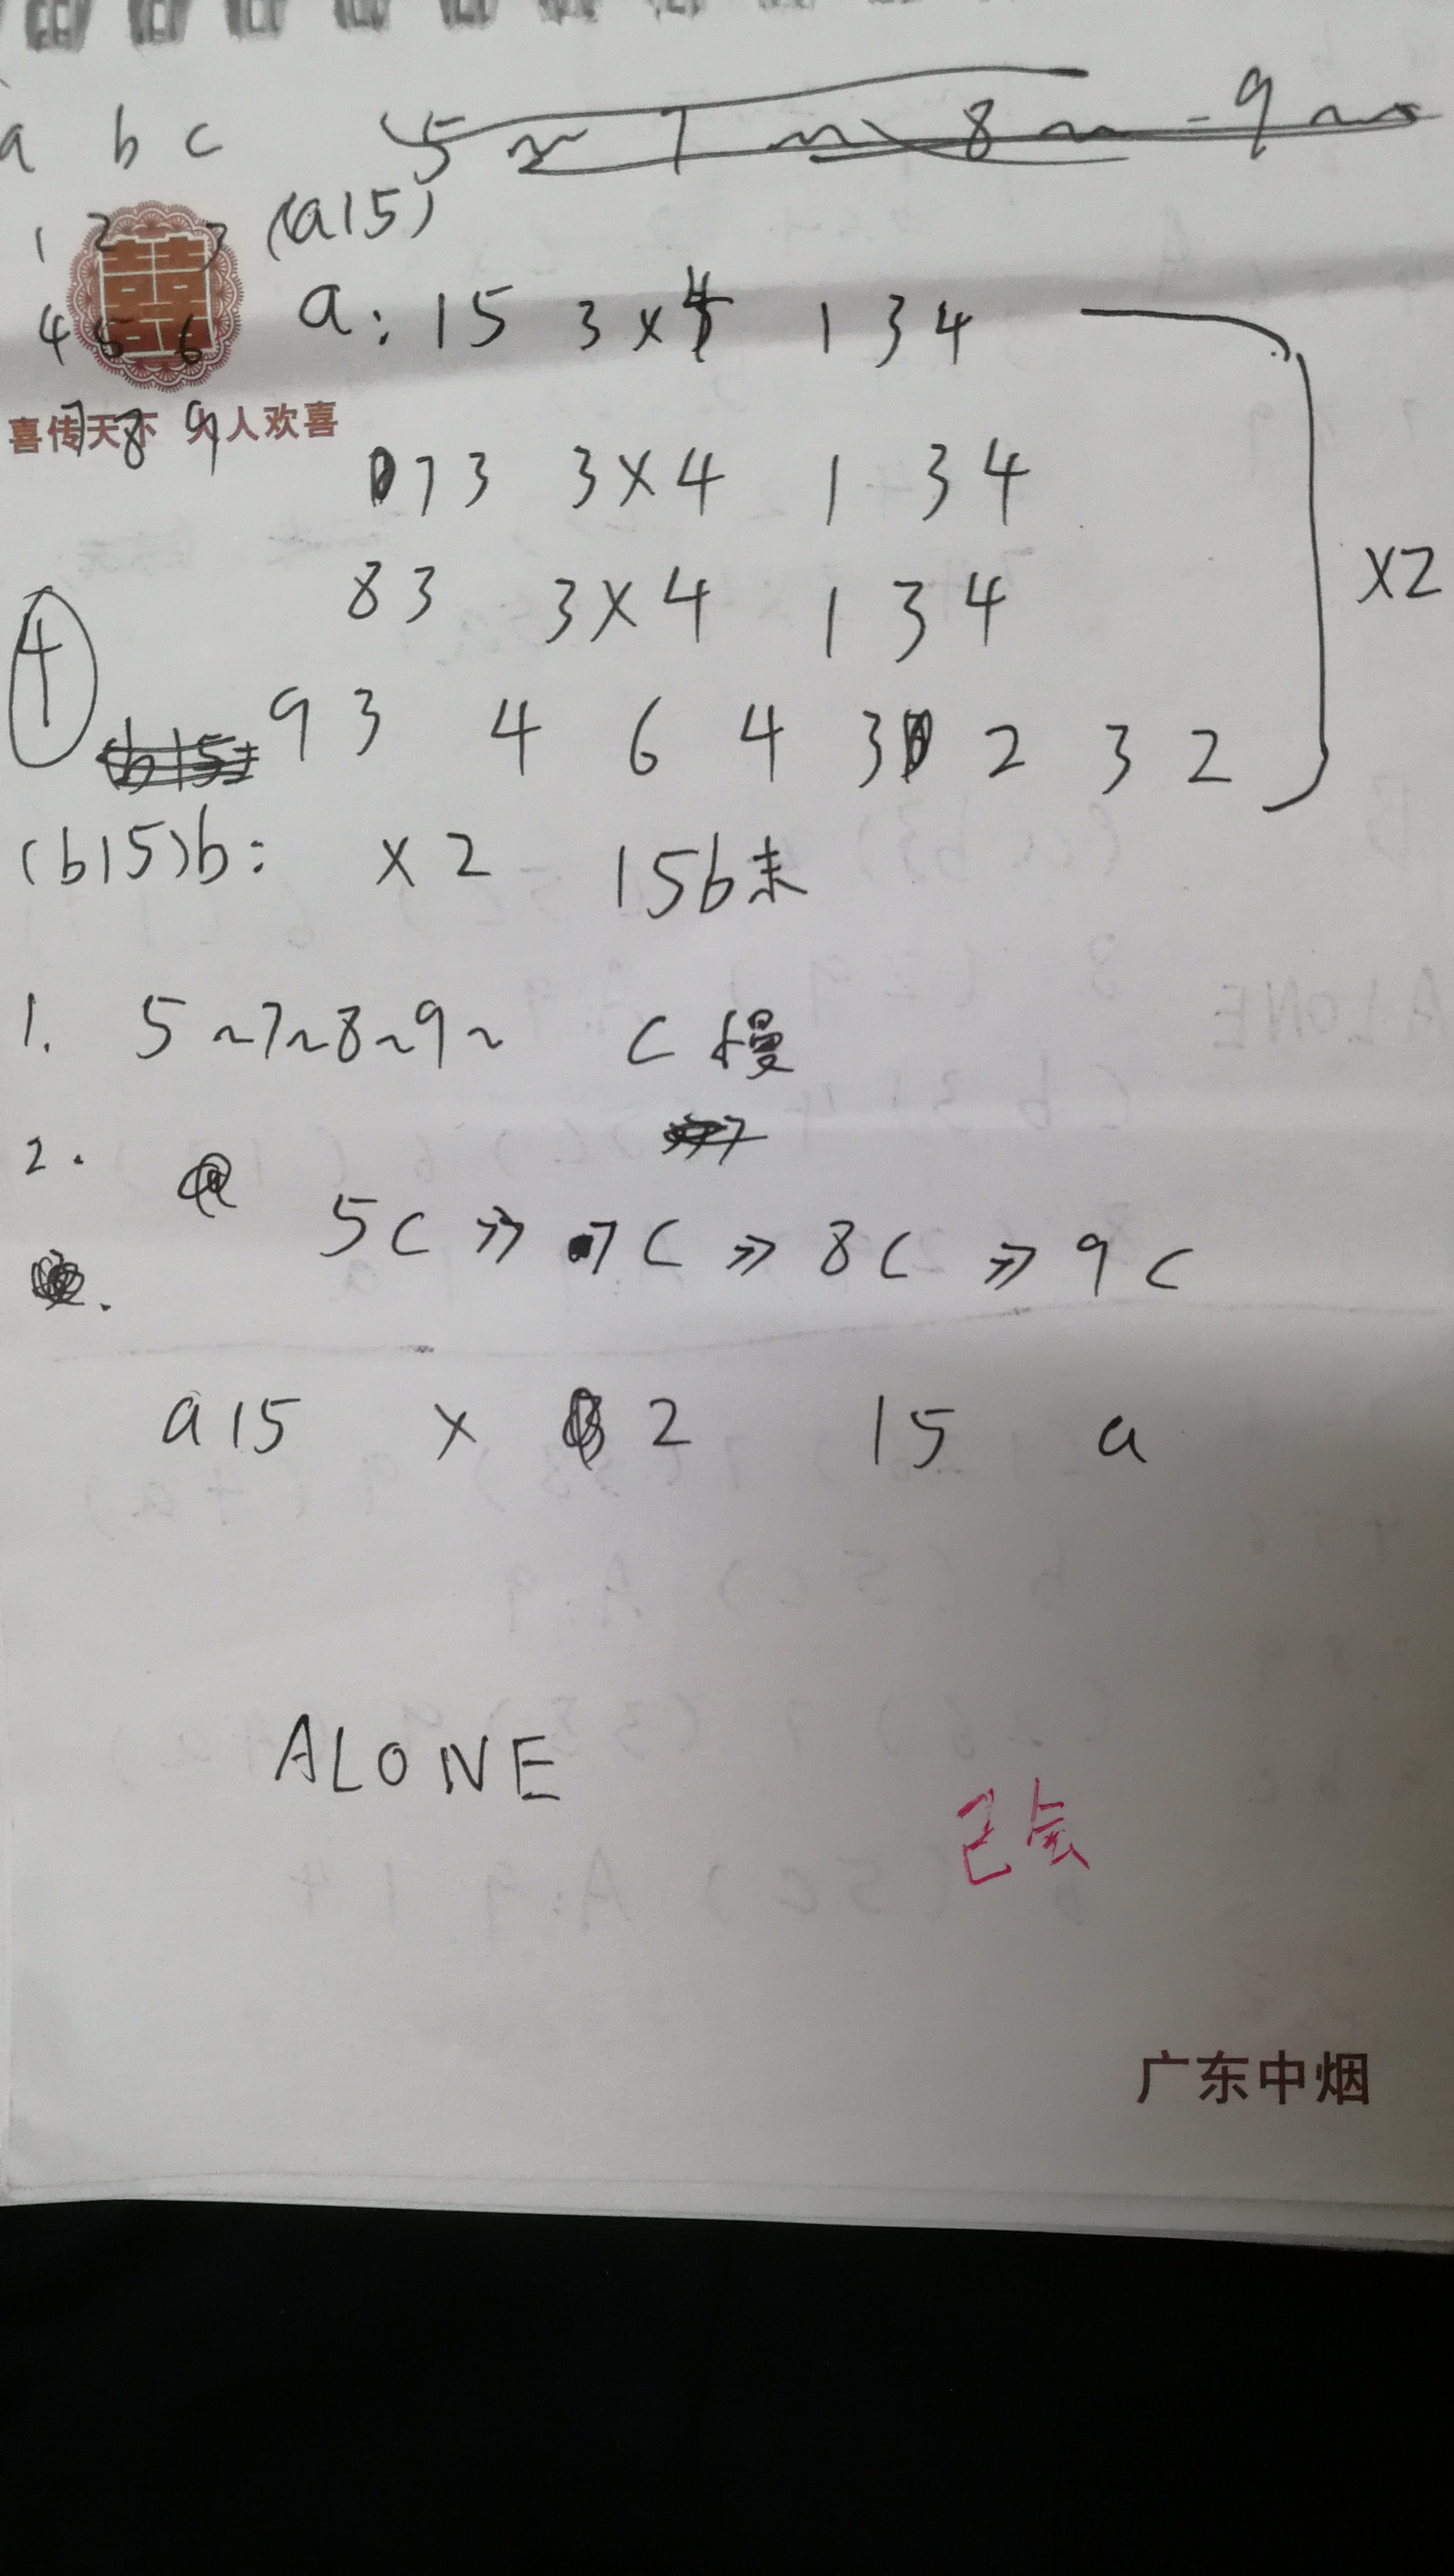 a b c 5 ~ 7 ~ 8 ~ 9 ~
1 2 3 (a15)
4 5 6 a: 15 3×4 1 3 4
喜传天下 人人欢喜
7 8 9
73 3×4 1 3 4
83 3×4 1 3 4
×2
4
93 4 6 4 3 2 3 2
(b15)
(b15)b: ×2 15b末
1. 5~7~8~9~ c慢
2.
5c » 7c » 8c » 9c
a15 × 2 15 a
ALONE
已会
广东中烟